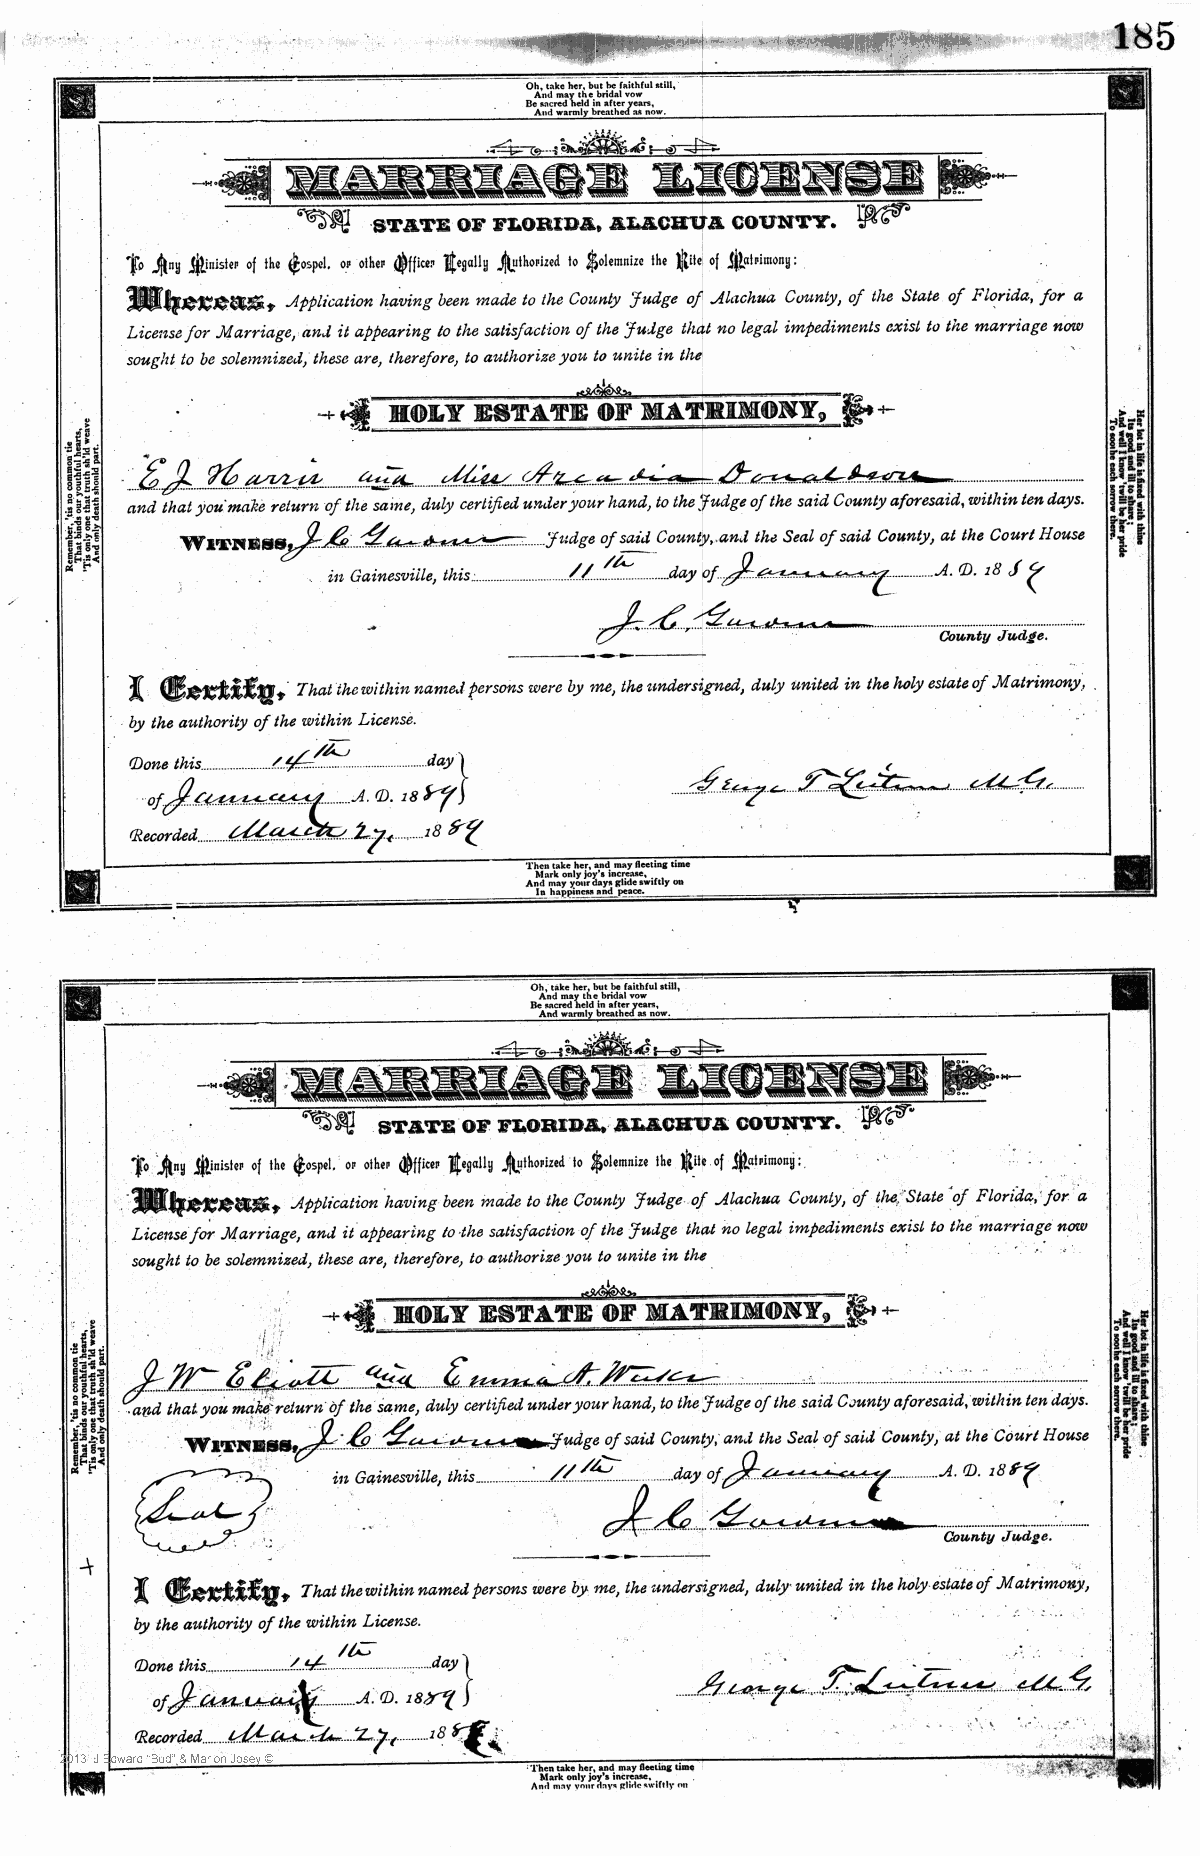 185
Oh, take her, but be faithful still,
And may the bridal vow
Be sacred held in after years,
And warmly breathed as now.
MARRIAGE LICENSE
STATE OF FLORIDA, ALACHUA COUNTY.
To Any Minister of the Gospel, or other Officer Legally Authorized to Solemnize the Rite of Matrimony:
Whereas, Application having been made to the County Judge of Alachua County, of the State of Florida, for a
License for Marriage, and it appearing to the satisfaction of the Judge that no legal impediments exist to the marriage now
sought to be solemnized, these are, therefore, to authorize you to unite in the
HOLY ESTATE OF MATRIMONY,
E J Harris and Miss Arcadia Donaldson
and that you make return of the same, duly certified under your hand, to the Judge of the said County aforesaid, within ten days.
WITNESS, J C Gardner Judge of said County, and the Seal of said County, at the Court House
in Gainesville, this 11th day of January A. D. 1889
J. C. Gardner
County Judge.
I Certify, That the within named persons were by me, the undersigned, duly united in the holy estate of Matrimony,
by the authority of the within License.
Done this 14th day
of January A. D. 1889
George T Leitner M.G.
Recorded March 27, 1889
Remember, 'tis no common tie
That binds our youthful hearts,
'Tis only one that truth sh'ld weave
And only death should part.
Her lot in life is fixed with thine
Its good and ill to share;
And well I know 'twill be her pride
To soothe each sorrow there.
Then take her, and may fleeting time
Mark only joy's increase,
And may your days glide swiftly on
In happiness and peace.
Oh, take her, but be faithful still,
And may the bridal vow
Be sacred held in after years,
And warmly breathed as now.
MARRIAGE LICENSE
STATE OF FLORIDA, ALACHUA COUNTY.
To Any Minister of the Gospel, or other Officer Legally Authorized to Solemnize the Rite of Matrimony:
Whereas, Application having been made to the County Judge of Alachua County, of the State of Florida, for a
License for Marriage, and it appearing to the satisfaction of the Judge that no legal impediments exist to the marriage now
sought to be solemnized, these are, therefore, to authorize you to unite in the
HOLY ESTATE OF MATRIMONY,
J W Eliott and Emma A. Weeks
and that you make return of the same, duly certified under your hand, to the Judge of the said County aforesaid, within ten days.
WITNESS, J C Gardner Judge of said County, and the Seal of said County, at the Court House
in Gainesville, this 11th day of January A. D. 1889
Seal
J C Gardner
County Judge.
I Certify, That the within named persons were by me, the undersigned, duly united in the holy estate of Matrimony,
by the authority of the within License.
Done this 14th day
of January A. D. 1889
George T. Leitner M.G.
Recorded March 27, 188
Remember, 'tis no common tie
That binds our youthful hearts,
'Tis only one that truth sh'ld weave
And only death should part.
Her lot in life is fixed with thine
Its good and ill to share;
And well I know 'twill be her pride
To soothe each sorrow there.
2013 J Edward "Bud" & Marion Josey ©
Then take her, and may fleeting time
Mark only joy's increase,
And may your days glide swiftly on